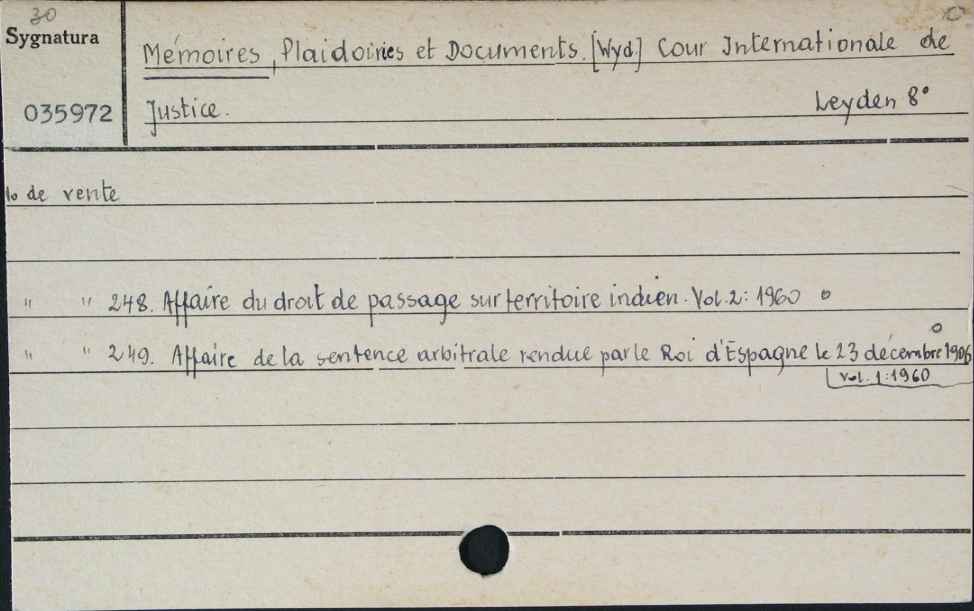 30
Sygnatura
035972
Mémoires, Plaidoiries et Documents. [Wyd.] Cour Internationale de
Justice. Leyden 8°
No de vente
" " 248. Affaire du droit de passage sur territoire indien. Vol. 2: 1960 o
" " 249. Affaire de la sentence arbitrale rendue par le Roi d'Espagne le 23 décembre 1906 o
vol. 1: 1960